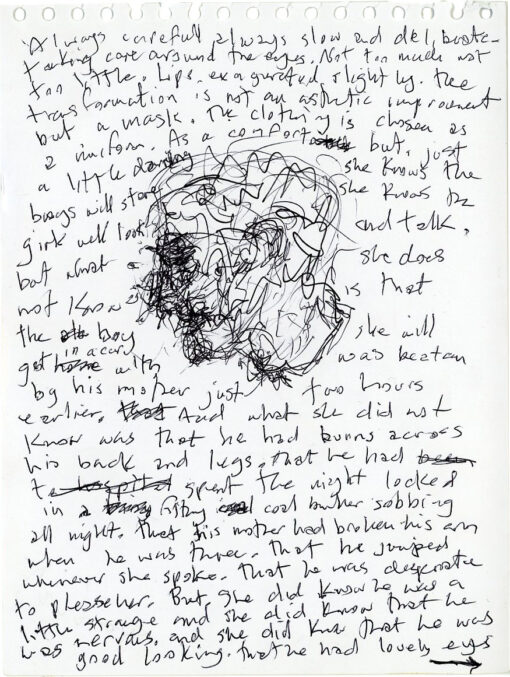 Always carefull always slow and deliberate
taking care around the eyes. Not too much not
too little. Lips, exagurated, slightly. The
transformation is not an asthetic improvement
but a mask. The clothing is chosen as
a uniform. As a comfort but, just
a little daring she knows the
boys will stare she knows the
girls will look and talk.
but what she does
not know is that
the boy she will
get in a car with was beaten
by his mother just two hours
earlier. And what she did not
know was that he had burns across
his back and legs. that he had been
to hospital spent the night locked
in a filthy coal bunker sobbing
all night. that his mother had broken his arm
when he was three. that he jumped
whenever she spoke. that he was desperate
to please her. But, she did know he was a
little strange and she did know that he
was nervous. and she did know that he was
good looking. that he had lovely eyes